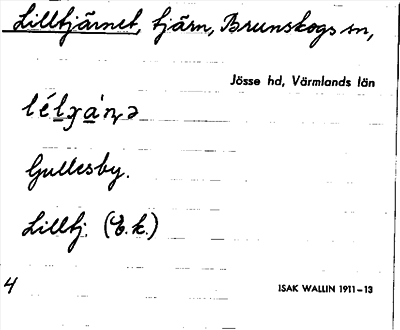 Lilltjärnet, tjärn, Brunskogs sn,
Jösse hd, Värmlands län
Gullesby.
Lilltj. (E.k.)
4
ISAK WALLIN 1911–13